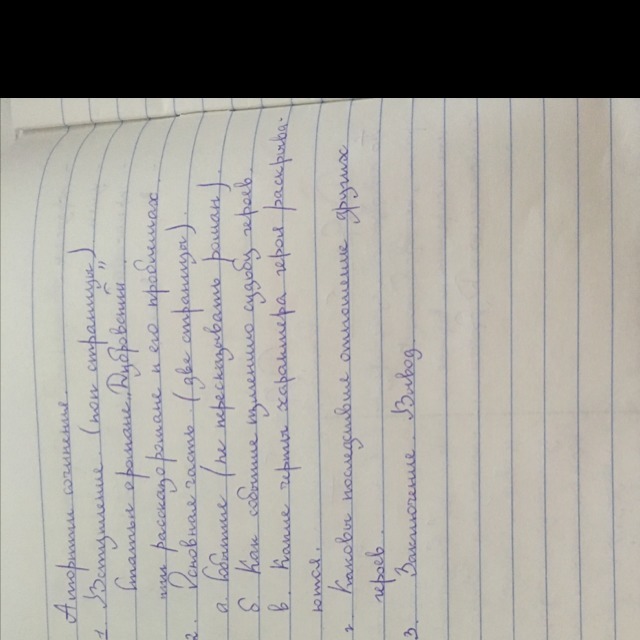 Алгоритм сочинения
1. Вступление (пол страницы)
Статья о романе "Дубровский"
или рассказ о романе и его проблемах
2. Основная часть (две страницы).
а. Событие (не пересказывать роман).
б Как событие изменило судьбу героев.
в. Какие черты характера героя раскрыва-
ются.
г. Каковы последствия отношение других
героев.
3. Заключение. Вывод